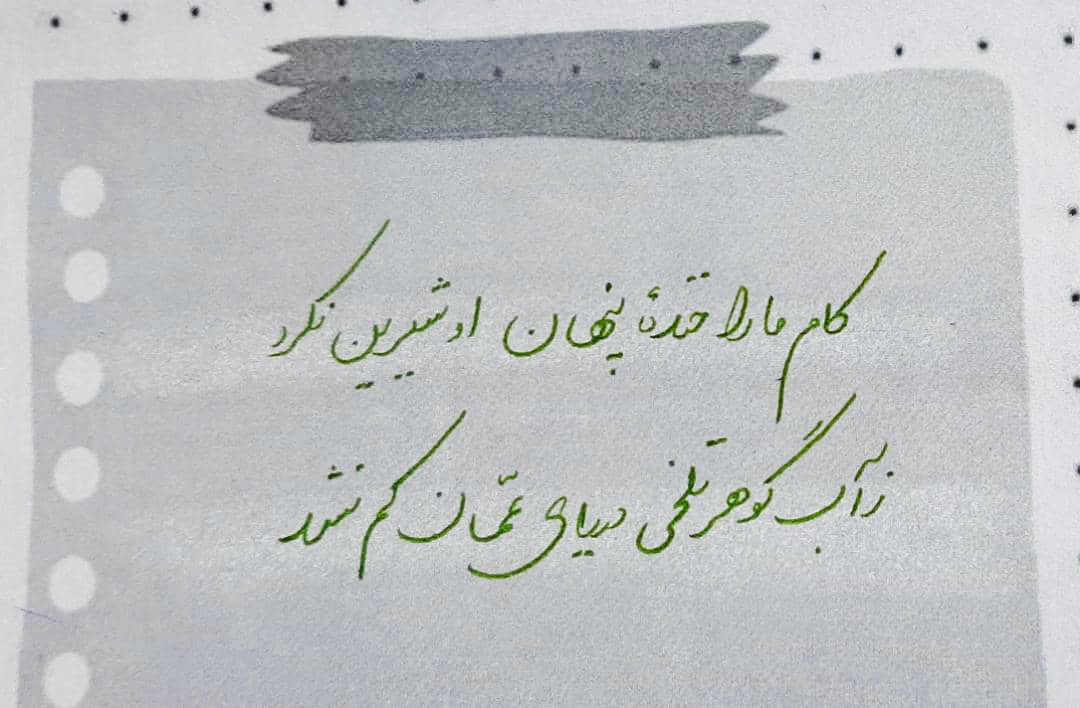 کام ما را خندهٔ پنهان او شیرین نکرد
ز آب گوهر تلخی دریای عمّان کم نشد